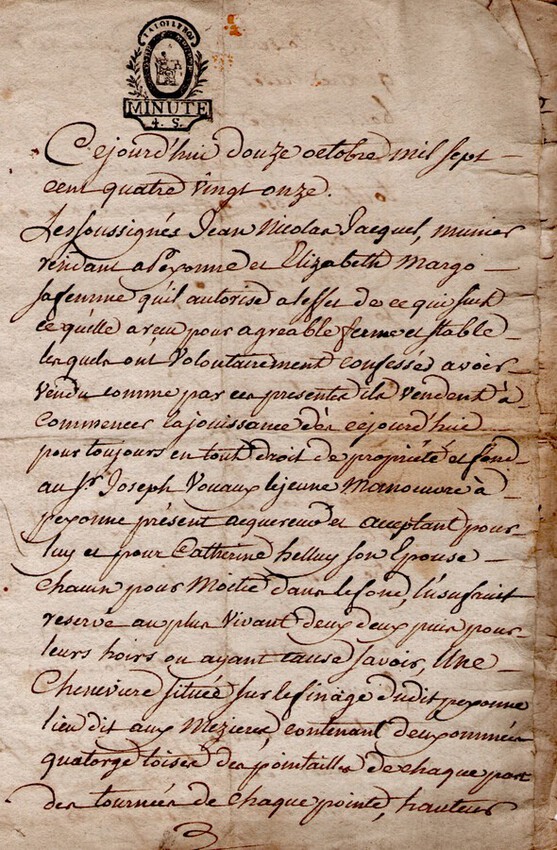 LA LOI LE ROI
MINUTE
4. S.
Cejourd'hui douze octobre mil sept
cent quatre vingt onze.
Les soussignés Jean Nicolas Jacquel, munier
résidant a Pexonne et Elizabeth Margo
sa femme qu'il autorise a l'effet de ce qui suit
ce qu'elle a reçu pour agreable ferme et stable
lesquels ont volontairement confessés avoir
vendu comme par ces presentes ils vendent à
commencer la jouissance dès cejourd'hui
pour toujours en tout droit de propriété et fond
au Sr. Joseph Vouaux le jeune Manoeuvre à
pexonne présent acquereur et acceptant pour
luy et pour Catherine helluy son Epouse
chacun pour Moitié dans le fond, l'usufruit
reservé au plus vivant deux deux puis pour
leurs hoirs ou ayant cause savoir, Une
Cheneviere située sur le finage dudit pexonne
lieu dit aux Mezieres, contenant deux ommées
quatorze toises des pointailles de chaque part
des tournées de chaque pointe, hauteur